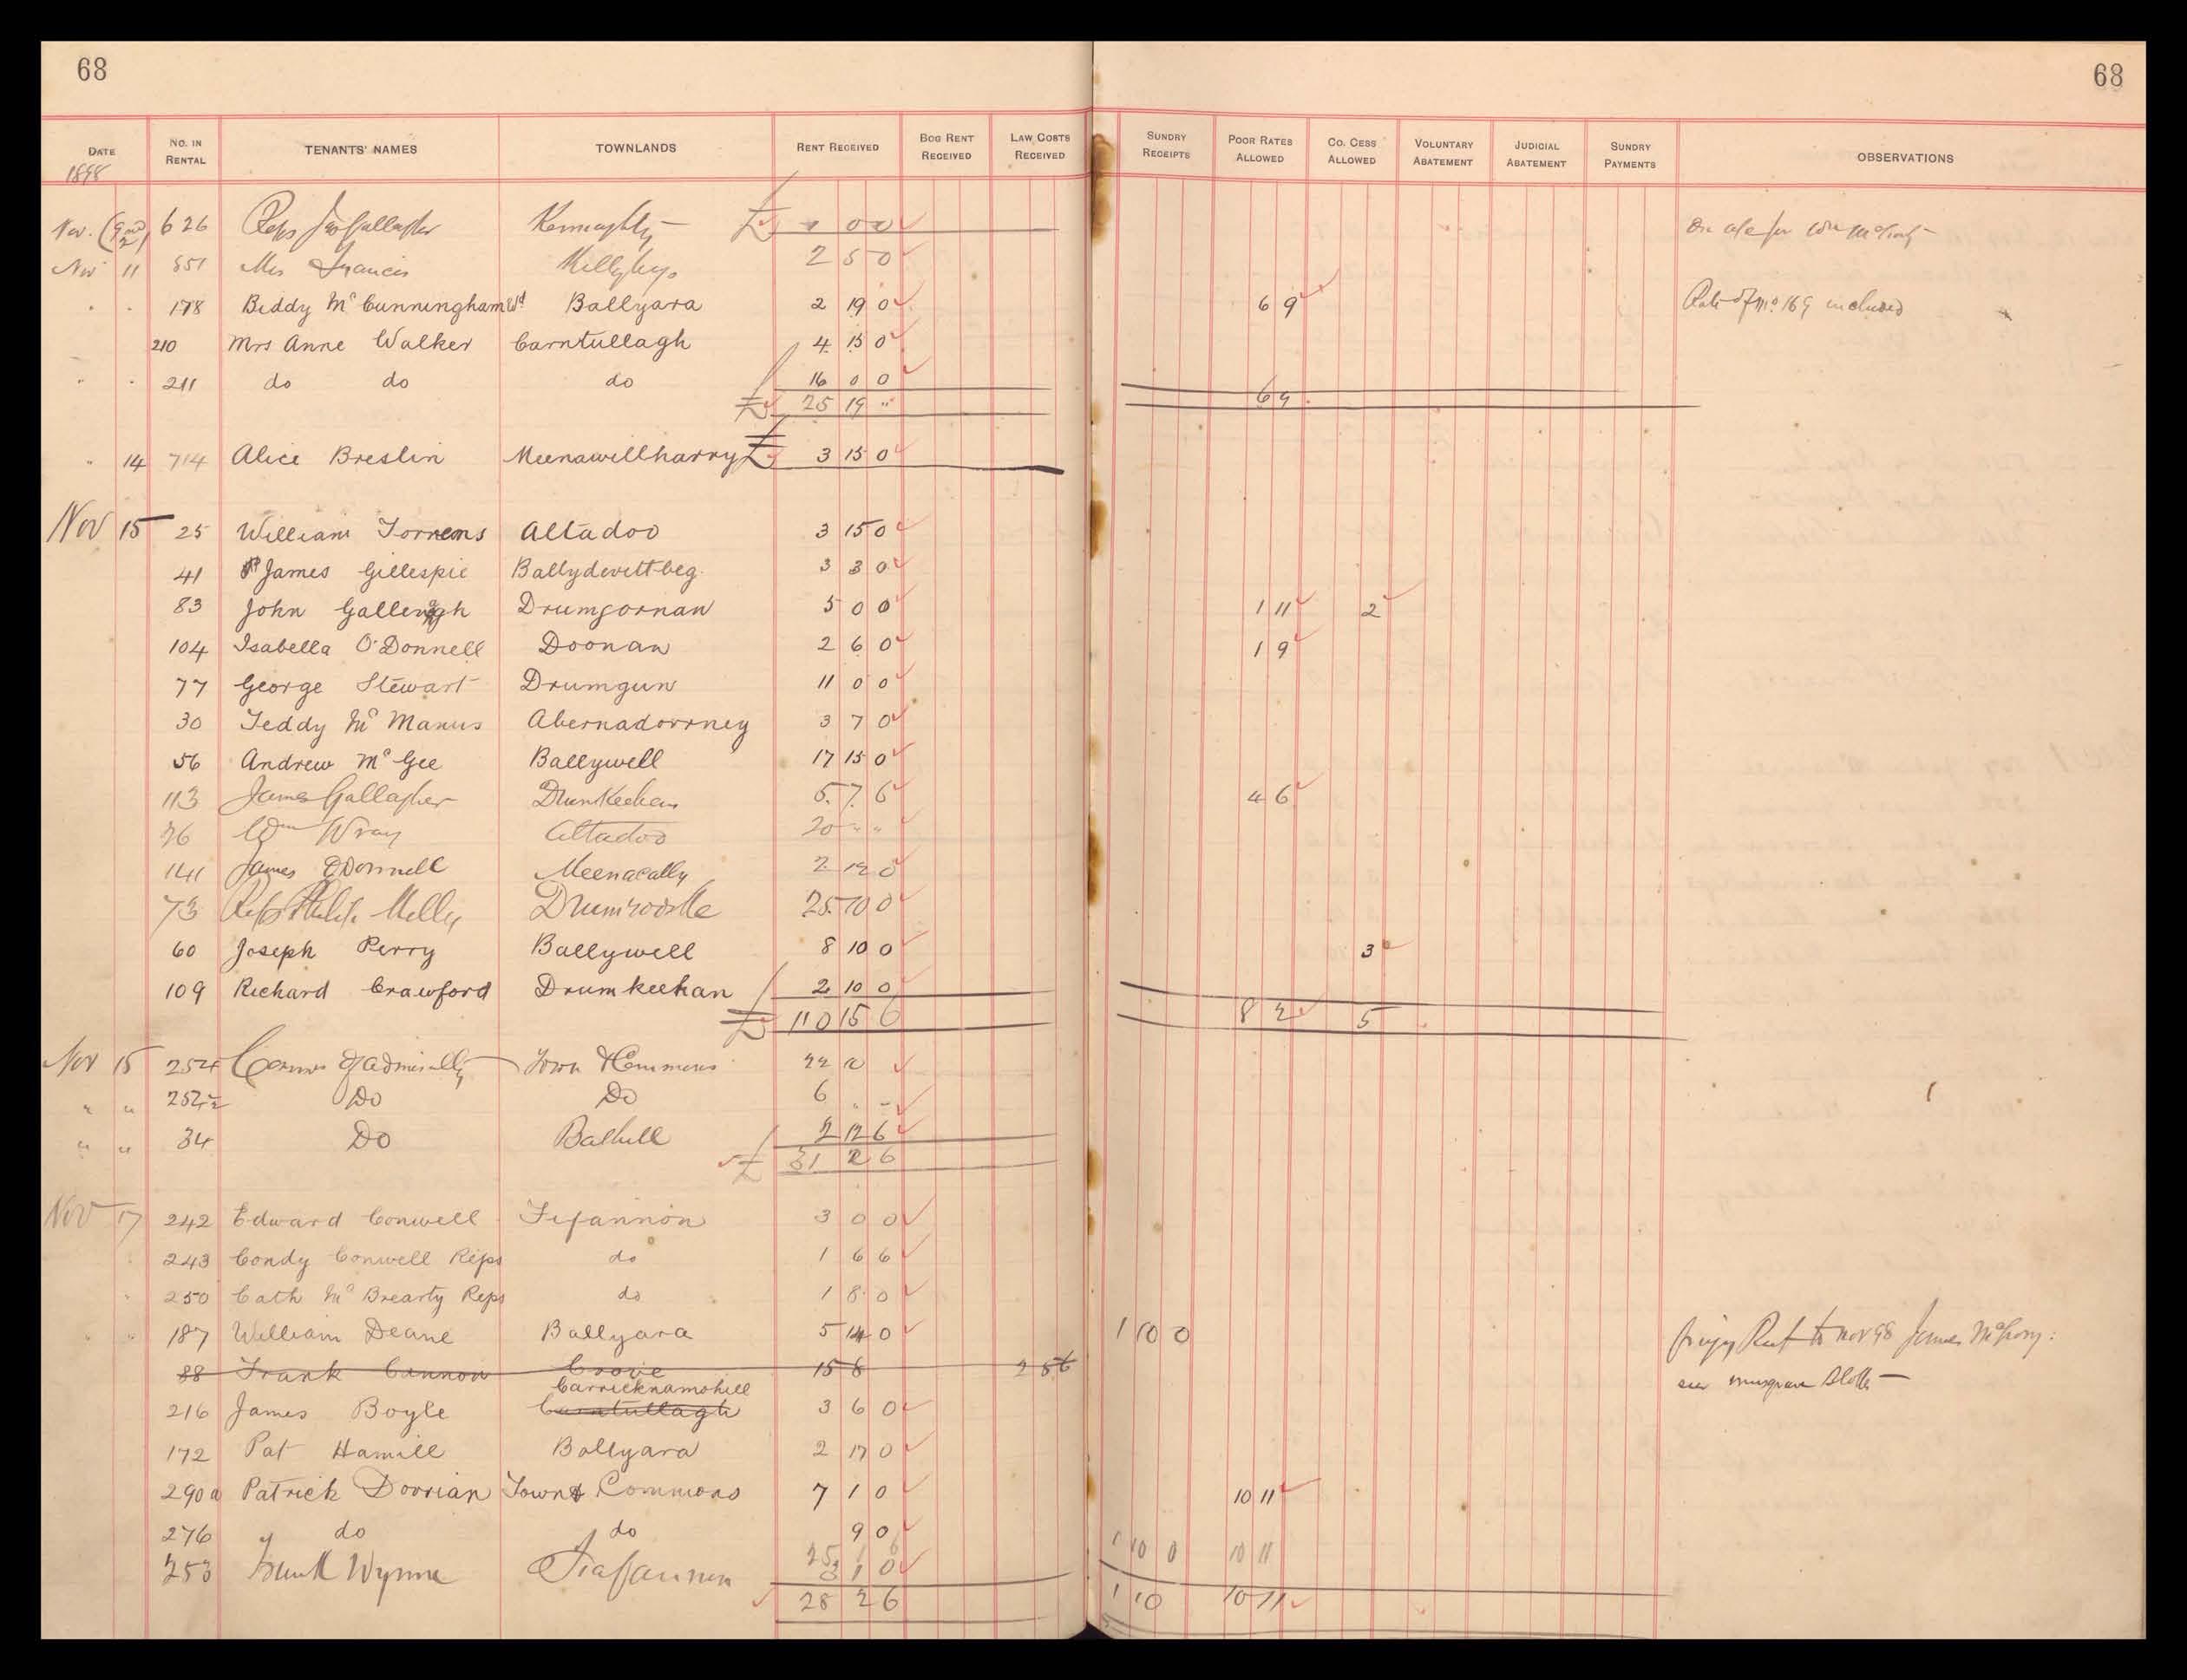 68 68
DATE NO. IN RENTAL TENANTS' NAMES TOWNLANDS RENT RECEIVED BOG RENT RECEIVED LAW COSTS RECEIVED SUNDRY RECEIPTS POOR RATES ALLOWED CO. CESS ALLOWED VOLUNTARY ABATEMENT JUDICIAL ABATEMENT SUNDRY PAYMENTS OBSERVATIONS
1898
Nov. 626 Reps Jas Gallagher £ 1 0 0
Nov 11 851 Mrs Francis Killybegs 2 5 0
" " 178 Biddy Mc Cunningham Wd Ballyara 2 19 0 6 9 Rate of No. 169 included
210 Mrs Anne Walker Carntullagh 4 15 0
" " 211 do do do 16 0 0
£ 25 19 " 6 9
" 14 714 Alice Breslin Meenawillharry £ 3 15 0
Nov 15 25 William Torrens Altadoo 3 15 0
41 James Gillespie Ballydevitt beg. 3 3 0
83 John Drumgornan 5 0 0 1 11 2
104 Isabella O'Donnell Doonan 2 6 0 1 9
77 George Stewart Drumgun 11 0 0
30 Teddy Mc Manus Abernadorrney 3 7 0
56 Andrew Mc Gee Ballywell 17 15 0
113 James Gallagher Drumkeehan 5. 7. 6 4 6
Wm Wray Altadoo 20 " "
141 James O'Donnell Meenacally 2 12 0
73 Reps Melly Drumrooske 25 10 0
60 Joseph Perry Ballywell 8 10 0 3
109 Richard Crawford Drumkeehan 2 10 0
£ 110 15 6 8 2 5
Nov 15 254 Comrs of Admiralty Town & Commons 22 10
" " Do Do 6 " "
" " 34 Do Balhill 2 12 6
£ 31 2 6
Nov 17 242 Edward Conwell Fifannon 3 0 0
243 Condy Conwell Reps do 1 6 6
" 250 Cath Mc Brearty Reps do 1 8 0
" " 187 William Deane Ballyara 5 14 0 1 10 0 to Nov 98 James
88 Frank Cannon Crove 15 8 2 8 6
Carricknamohill
216 James Boyle Carntullagh 3 6 0
172 Pat Hamill Ballyara 2 17 0
290a Patrick Dorrian Town & Commons 7 1 0 10 11
276 do do 9 0
25 1 6 1 10 0 10 11
253 Frank Wynne Fiafannon 3 1 0
28 2 6 1 10 10 11